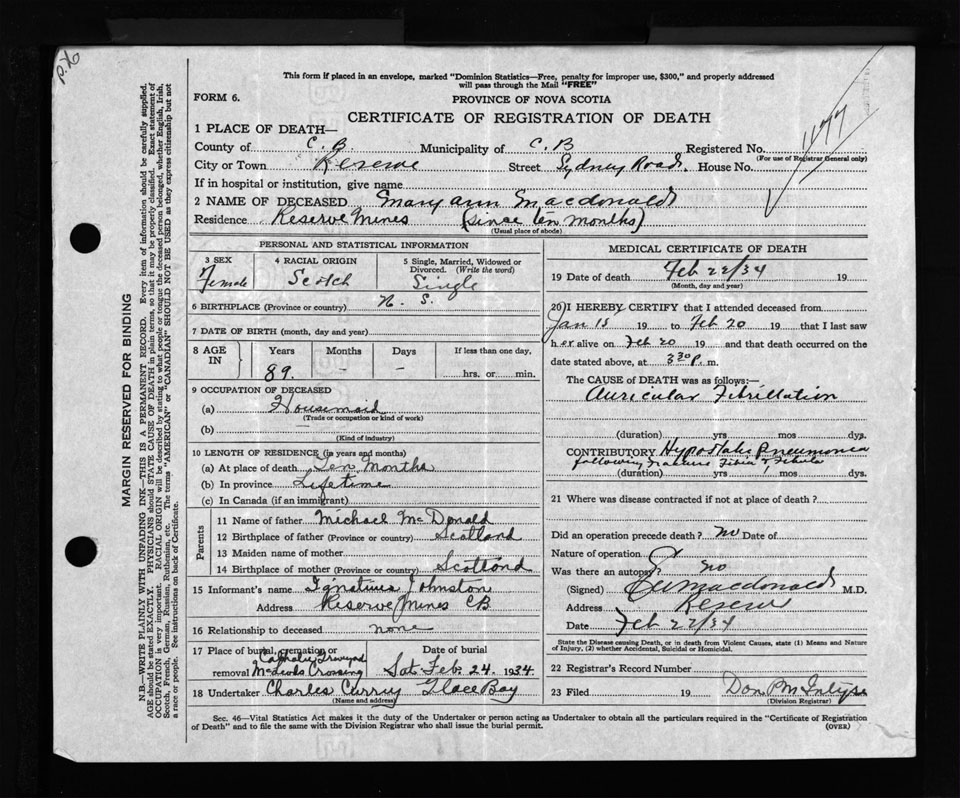 This form if placed in an envelope, marked "Dominion Statistics—Free, penalty for improper use, $300," and properly addressed
will pass through the Mail "FREE"
FORM 6.
PROVINCE OF NOVA SCOTIA
CERTIFICATE OF REGISTRATION OF DEATH
1 PLACE OF DEATH—
County of C. B. Municipality of C. B Registered No.
(For use of Registrar General only)
1477
City or Town Reserve Street Sydney Road. House No.
If in hospital or institution, give name
2 NAME OF DECEASED Mary Ann Macdonald
Residence Reserve Mines (Since ten months)
(Usual place of abode)
PERSONAL AND STATISTICAL INFORMATION
3 SEX 4 RACIAL ORIGIN 5 Single, Married, Widowed or
Divorced. (Write the word)
Female Scotch Single
6 BIRTHPLACE (Province or country) N. S.
7 DATE OF BIRTH (month, day and year)
8 AGE IN Years Months Days If less than one day.
89. – – hrs. or min.
9 OCCUPATION OF DECEASED
(a) Housemaid
(Trade or occupation or kind of work)
(b)
(Kind of industry)
10 LENGTH OF RESIDENCE (in years and months)
(a) At place of death Ten Months
(b) In province Lifetime
(c) In Canada (if an immigrant)
Parents
11 Name of father Michael McDonald
12 Birthplace of father (Province or country) Scotland
13 Maiden name of mother
14 Birthplace of mother (Province or country) Scotland
15 Informant's name Ignatius Johnston
Address Reserve Mines CB
16 Relationship to deceased none
17 Place of burial, cremation or removal Date of burial
McLeods Crossing Sat. Feb. 24. 1934
18 Undertaker Charles Curry Glace Bay
(Name and address)
MEDICAL CERTIFICATE OF DEATH
19 Date of death Feb 22/34 19
(Month, day and year)
20 I HEREBY CERTIFY that I attended deceased from
Jan 15 19 to Feb 20 19 that I last saw
her alive on Feb 20 19 and that death occurred on the
date stated above, at 3 30 P. m.
The CAUSE OF DEATH was as follows:—
Auricular Fibrillation
(duration) yrs mos dys.
CONTRIBUTORY Hypostatic Pneumonia
following fracture Tibia & Fibula
(duration) yrs mos dys.
21 Where was disease contracted if not at place of death ?
Did an operation precede death ? No Date of
Nature of operation
Was there an autopsy no
(Signed) Macdonald M.D.
Address Reserve
Date Feb 22/34
State the Disease causing Death, or in death from Violent Causes, state (1) Means and Nature
of Injury, (2) whether Accidental, Suicidal or Homicidal.
22 Registrar's Record Number
23 Filed 19 Don. P McIntyre
(Division Registrar)
Sec. 46—Vital Statistics Act makes it the duty of the Undertaker or person acting as Undertaker to obtain all the particulars required in the "Certificate of Registration
of Death" and to file the same with the Division Registrar who shall issue the burial permit. (OVER)
MARGIN RESERVED FOR BINDING
N.B.—WRITE PLAINLY WITH UNFADING INK—THIS IS A PERMANENT RECORD. Every item of information should be carefully supplied.
AGE should be stated EXACTLY. PHYSICIANS should STATE CAUSE OF DEATH in plain terms, so that it may be properly classified. Exact statement of
OCCUPATION is very important. RACIAL ORIGIN will be described by stating to what people or tongue the deceased person belonged, whether English, Irish,
Scotch, French, German, Russian, Ruthenian, etc. The terms "AMERICAN" or "CANADIAN" SHOULD NOT BE USED as they express citizenship but not
a race or people. See instructions on back of Certificate.